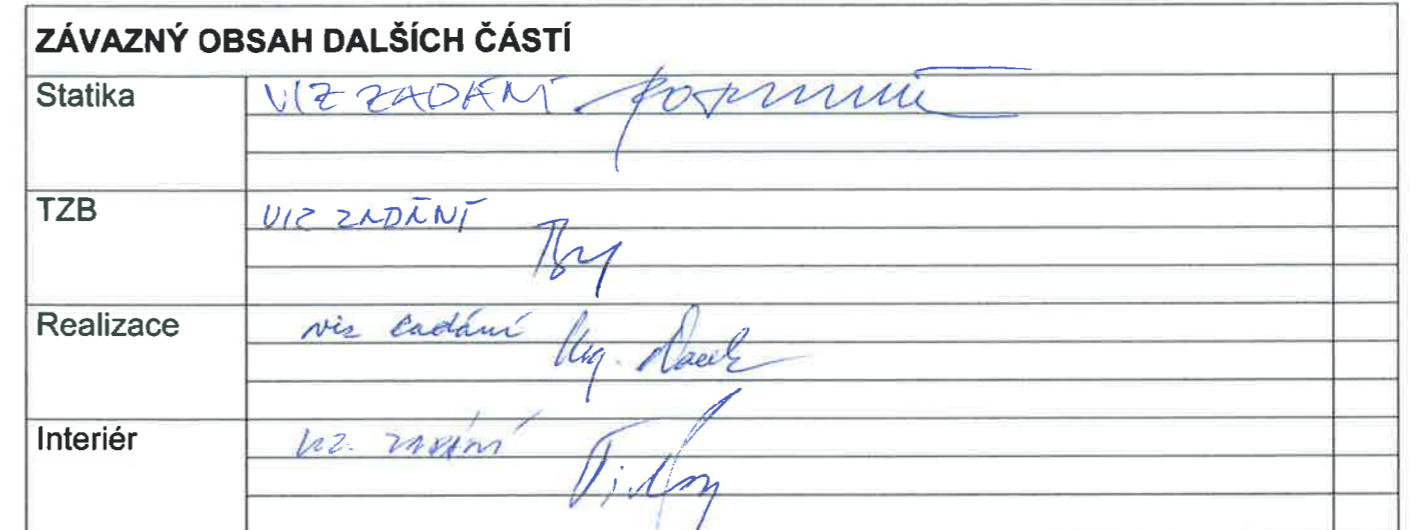 ZÁVAZNÝ OBSAH DALŠÍCH ČÁSTÍ
Statika VIZ ZADÁNÍ
TZB VIZ ZADÁNÍ
Realizace viz zadání Ing.
Interiér viz. zadání